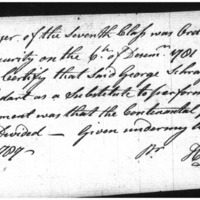 er. of the Seventh Class was Ord
curity on the 6th of Decemr. 1781
Certify that Said George Schra
dant as a Substitute to perform
ment was that the Contenental
Divided — Given under my h
789 Pr.